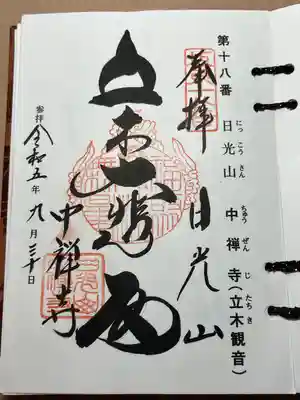 第十八番
日光山
にっこうさん
中禅寺(立木観音)
ちゅうぜんじ たちき
奉拝
日光山
立木大悲殿
中禅寺
参拝 令和五年九月三十日